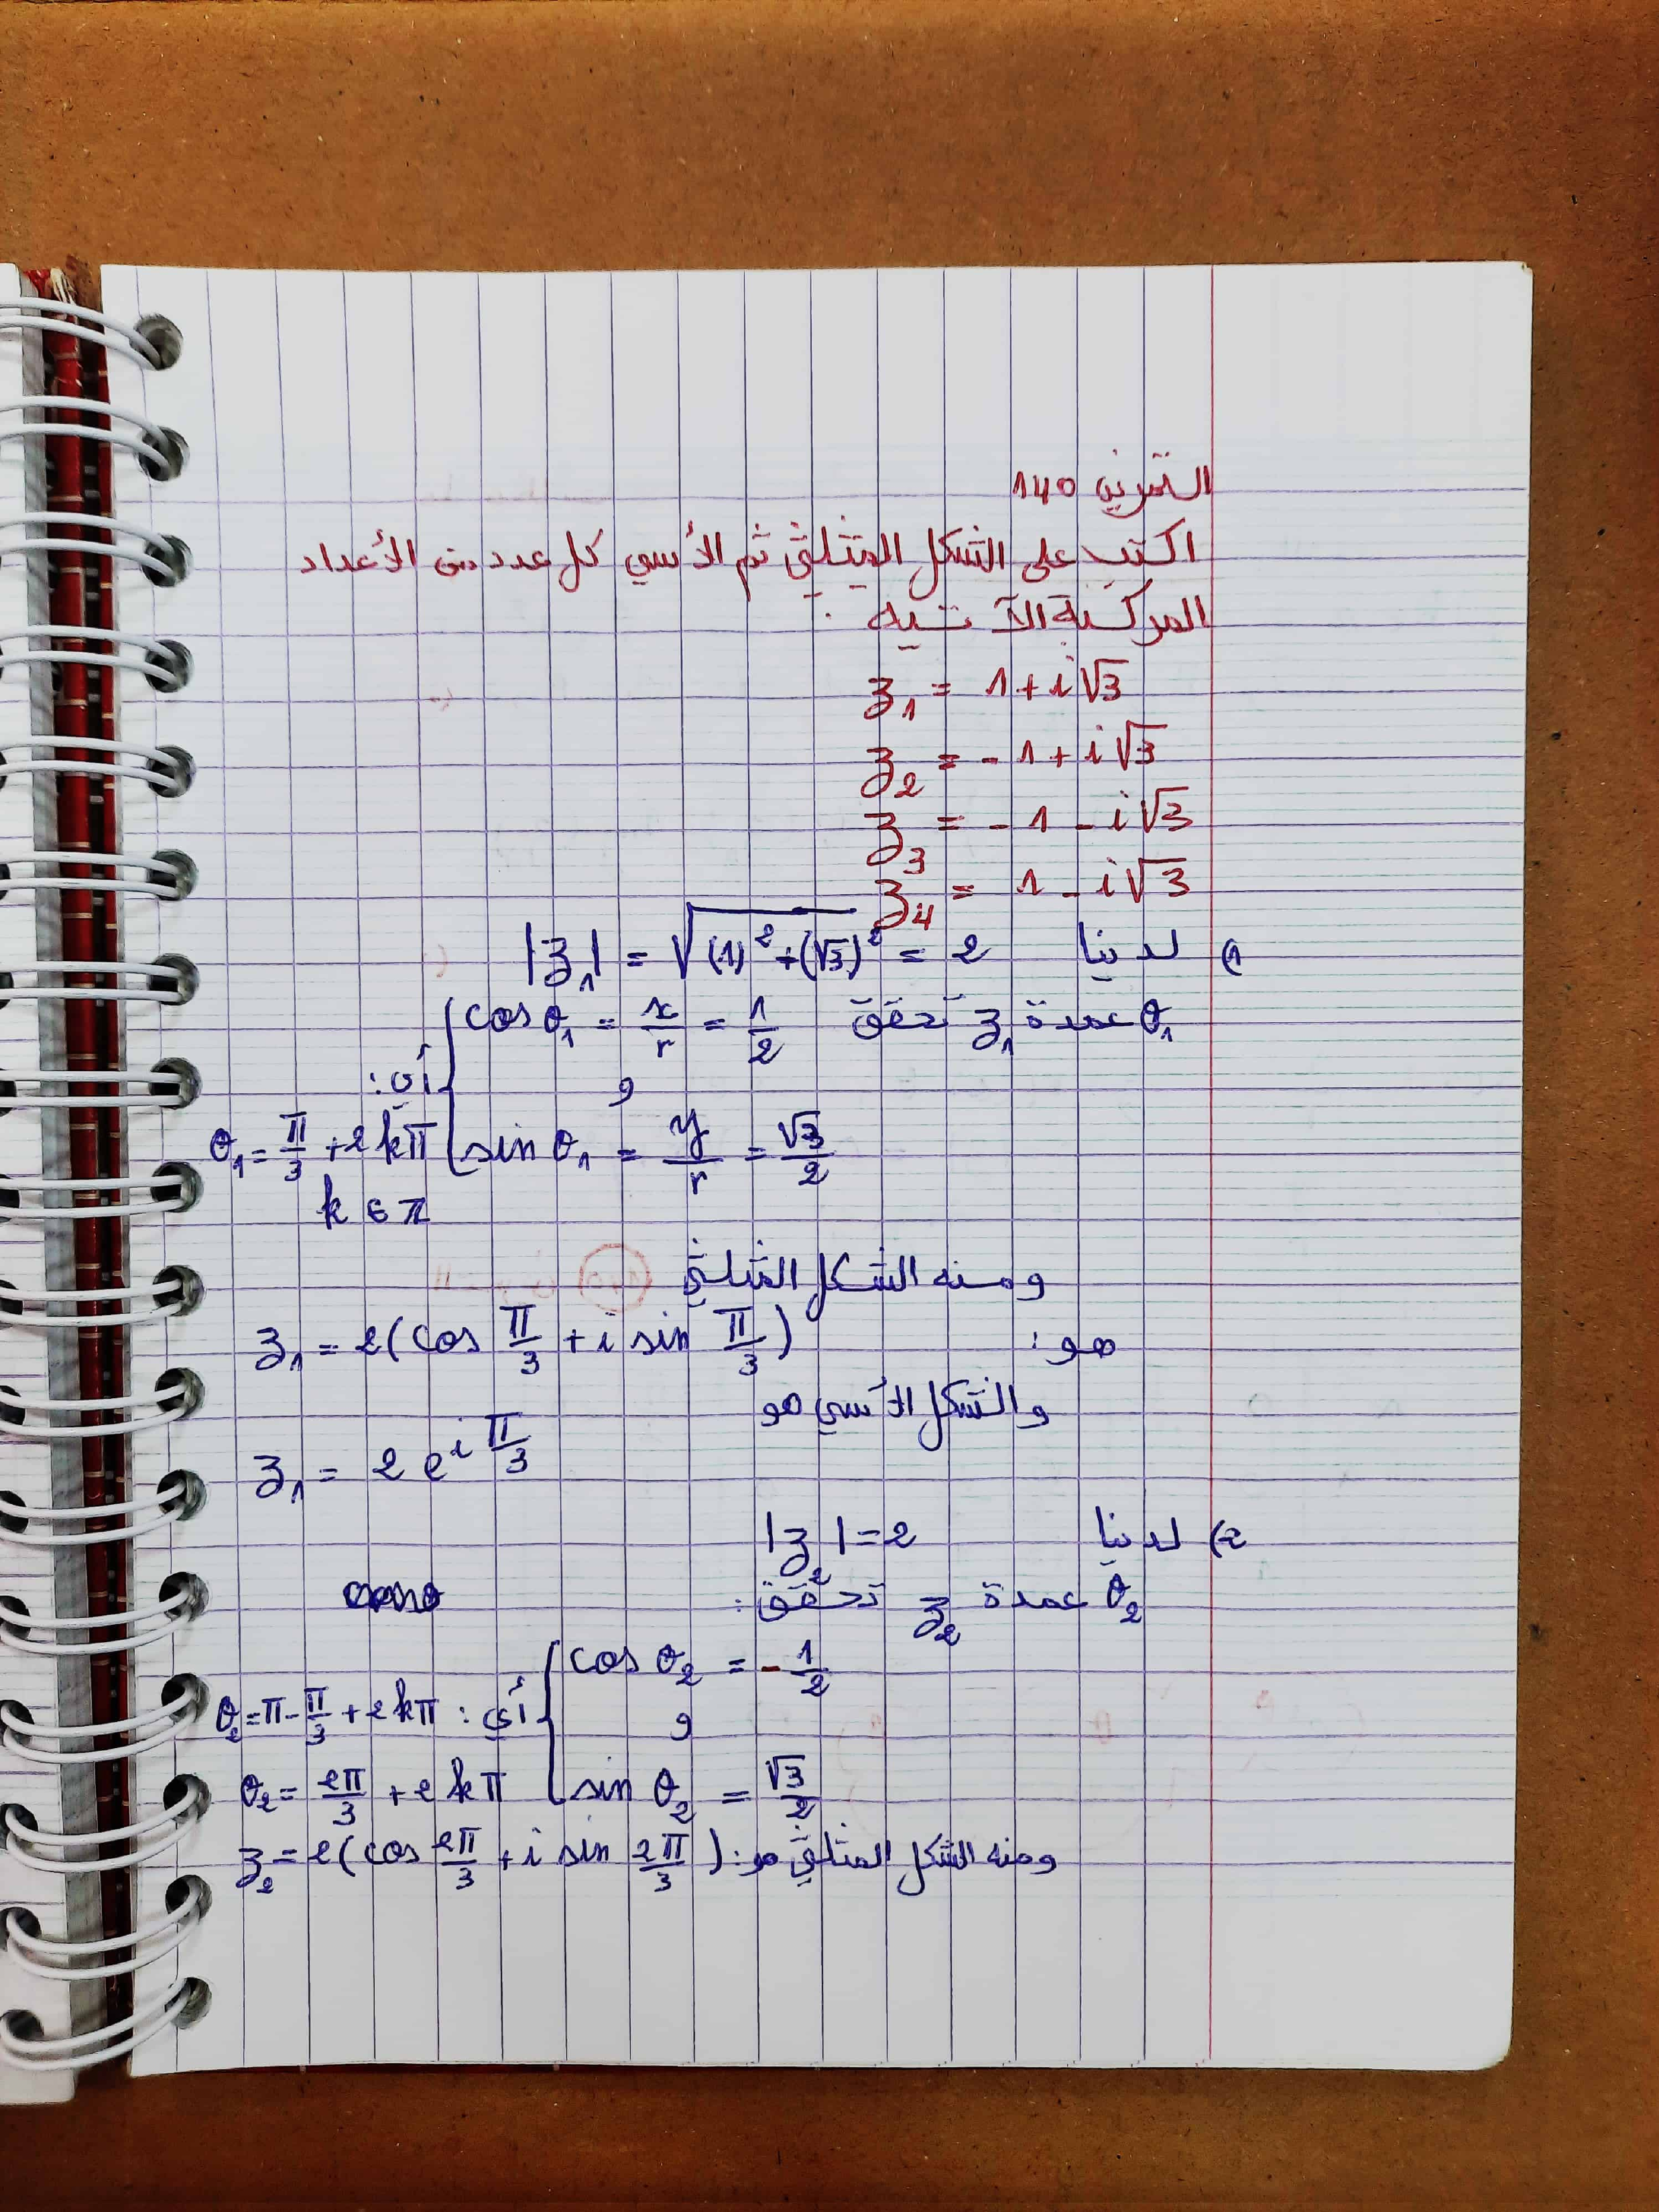 التمرين 140
اكتب على الشكل المثلثي ثم الأسي كل عدد من الأعداد
المركبة الآتية .
z₁ = 1 + i√3
z₂ = - 1 + i√3
z₃ = - 1 - i√3
z₄ = 1 - i√3
1) لدينا |z₁| = √((1)² + (√3)²) = 2
θ₁ عمدة z₁ تحقق { cos θ₁ = x/r = 1/2
و
أي:
sin θ₁ = y/r = √3/2
θ₁ = π/3 + 2kπ
k ∈ ℤ
ومنه الشكل المثلثي
هو: z₁ = 2(cos π/3 + i sin π/3)
والشكل الأسي هو
z₁ = 2 e^(i π/3)
2) لدينا |z₂| = 2
θ₂ عمدة z₂ تحقق:
{ cos θ₂ = - 1/2
و
أي: θ₂ = π - π/3 + 2kπ
sin θ₂ = √3/2
θ₂ = 2π/3 + 2kπ
ومنه الشكل المثلثي هو: z₂ = 2(cos 2π/3 + i sin 2π/3)